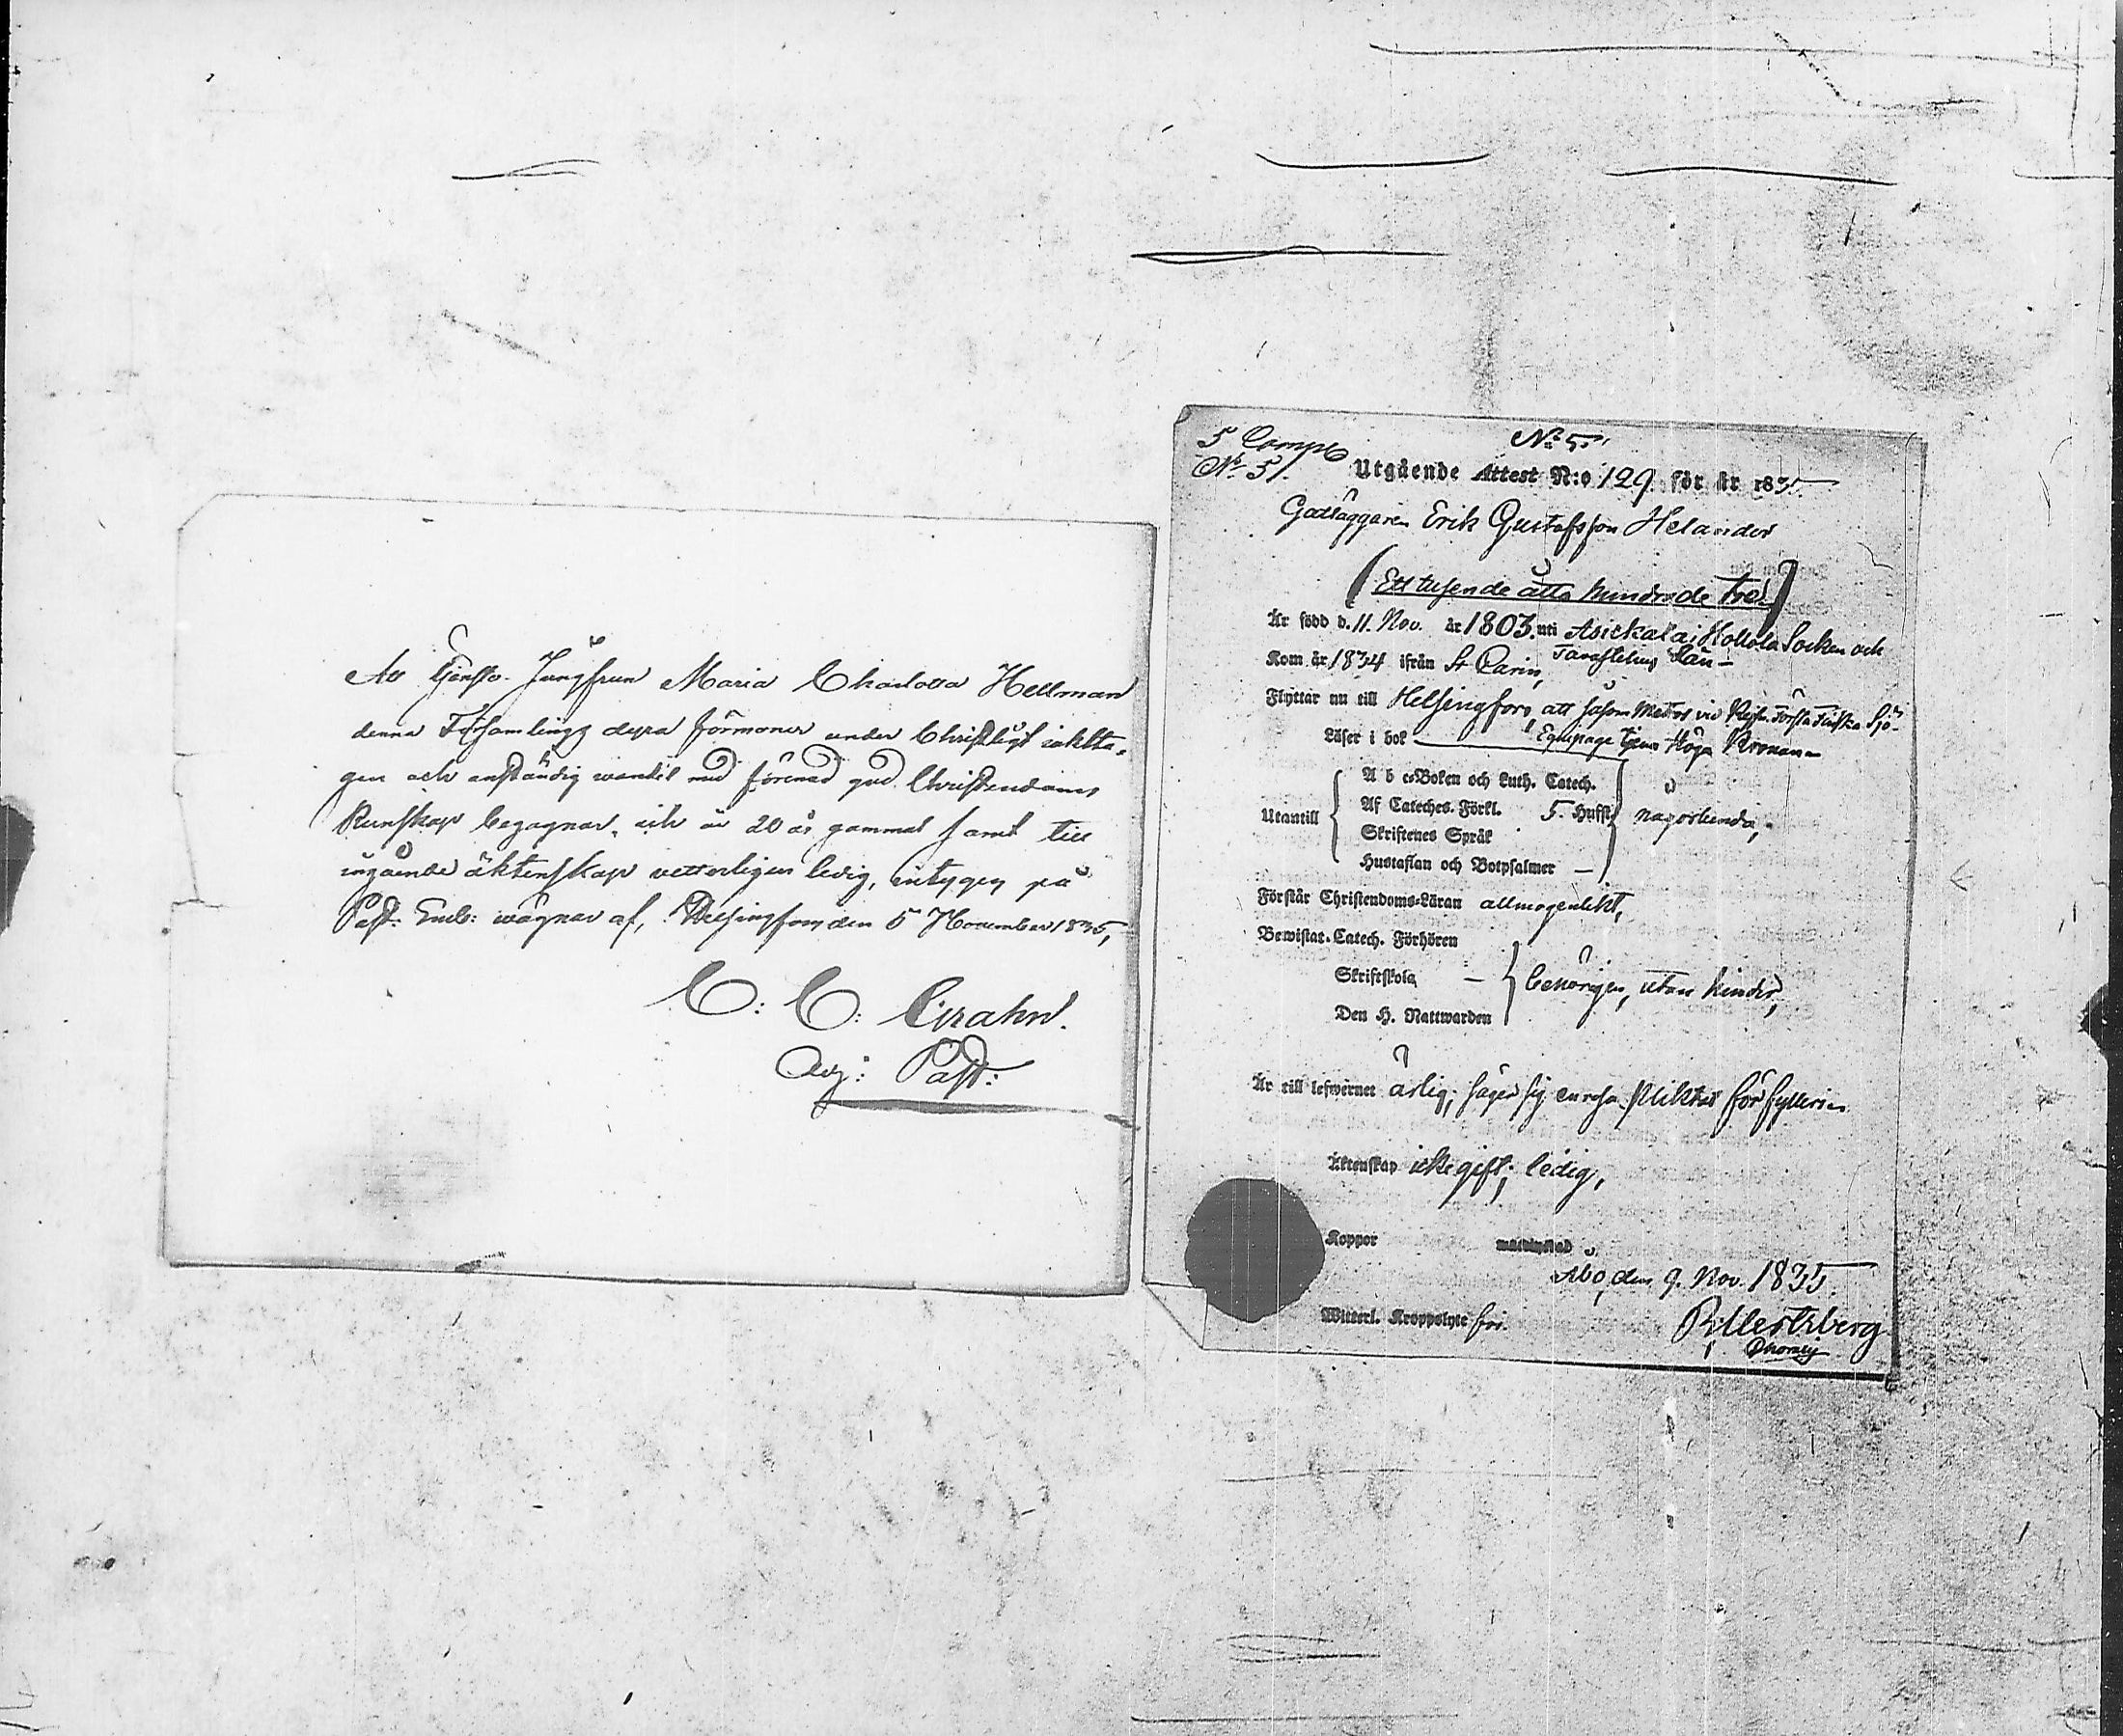 Att Tjenste Jungfrun Maria Charlotta Hellman
denna Församlings dyra förmoner under Christligt iaktta-
gen och anständig wandel med förenad god Christendoms
Kunskap begagnar, och är 20 år gammal samt till
ingående äktenskap vetterligen ledig, intygas på
Past: Embs: wägnar af, Helsingfors den 5 November 1835,
C: C: Grahn.
Adj: Past:
5 Comp
No 51.
No 5.
Utgående Attest N:o 129. för år 1835
Gatläggaren Erik Gustafsson Helander
(Ett tusende åtta hundrade tre)
Är född d. 11. Nov. år 1803. uti Asickala i Hollola Socken och
Tavastehus Län –
Kom år 1834 ifrån St Carin,
Flyttar nu till Helsingfors, att såsom Matros vid Första Finska Sjö-
Equipage tjena Höga Kronan
Läser i bok
Utantill
A b c-Boken och Luth. Catech.
Af Cateches. Förkl. 5. Hufst
Skriftenes Språk
Hustaflan och Botpsalmer –
någorlunda,
Förstår Christendoms-Läran allmogenlikt,
Bewistat Catech. Förhören
Skriftskola –
Den H. Nattwarden
behörigen, utan hinder,
Är till lefwernet ärlig, säger sig en resa pliktat för fylleri
Äktenskap icke gift, ledig,
Koppor
Åbo, den 9. Nov. 1835.
Witterl. Kroppslyte fri.